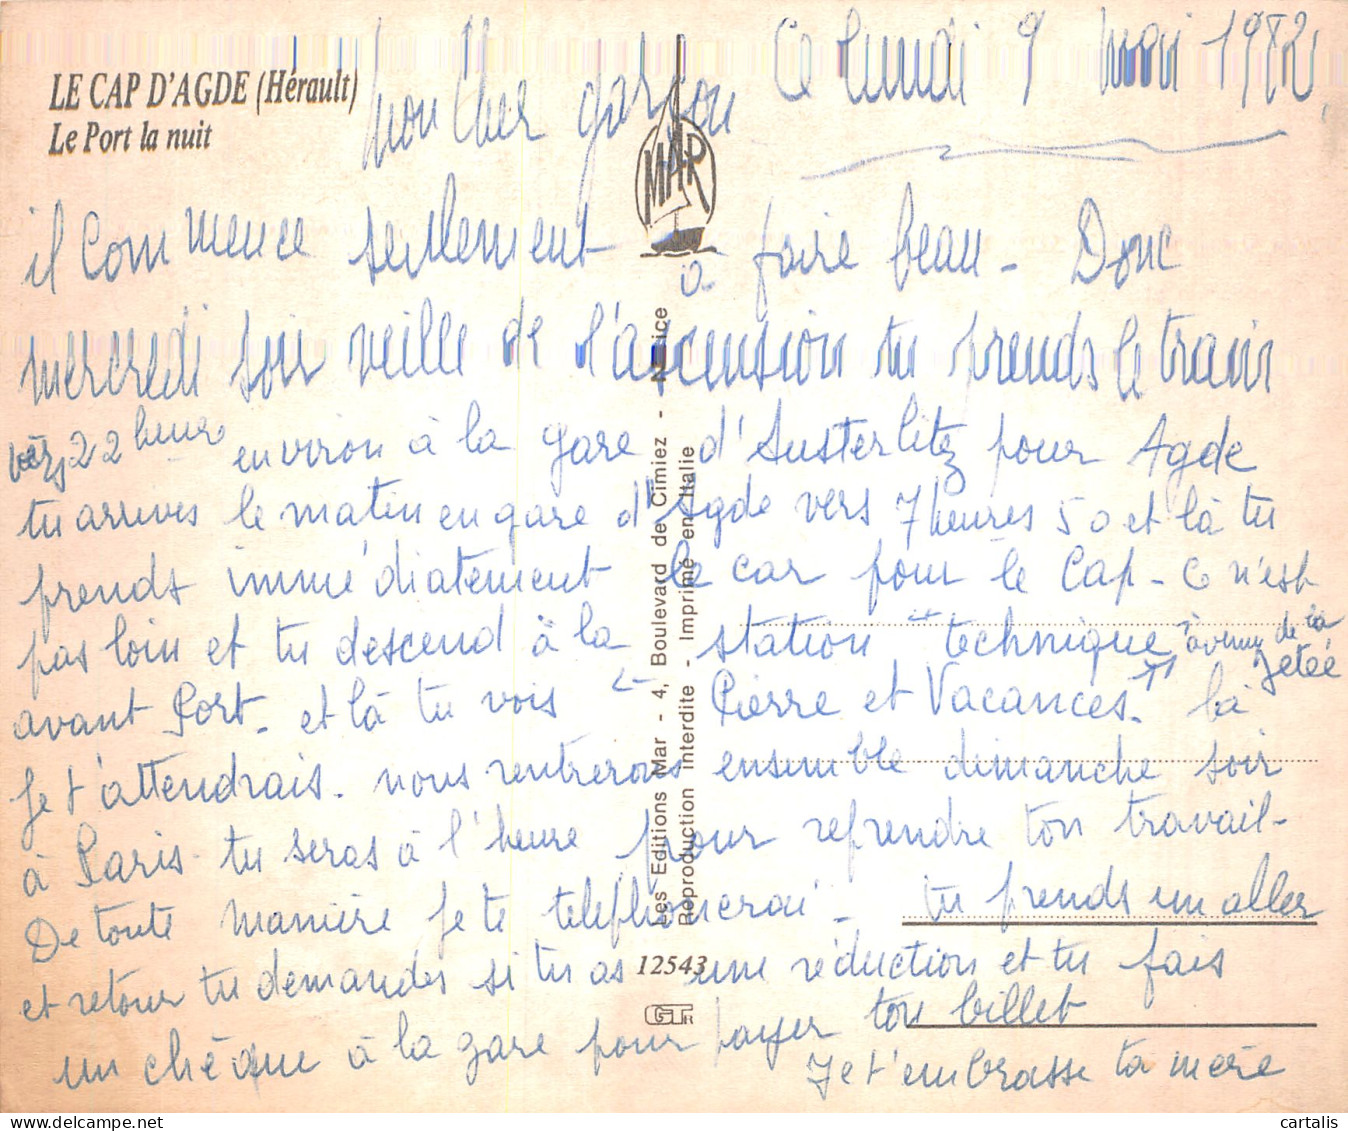 LE CAP D'AGDE (Hérault)
Le Port la nuit
Ce lundi 9 mai 1982.
Mon Cher garçon
MAR
il commence seulement à faire beau - Donc
mercredi soir veille de l'ascension tu prends le train
vers 22 heure environ à la gare d'Austerlitz pour Agde
tu arrives le matin en gare d'Agde vers 7 heures 50 et là tu
prends immédiatement le car pour le Cap - Ce n'est
pas loin et tu descend à la station "technique" avenue de la Jetée
avant Port - et là tu vois "Pierre et Vacances". là
je t'attendrais. nous rentrerons ensemble dimanche soir
à Paris tu seras à l'heure pour reprendre ton travail -
De toute manière je te telephonerai - tu prends un aller
et retour tu demandes si tu as une réduction et tu fais
un chèque à la gare pour payer ton billet
Je t'embrasse ta mère
Les Editions Mar - 4, Boulevard de Cimiez - Nice
Reproduction interdite - Imprimé en Italie
12543